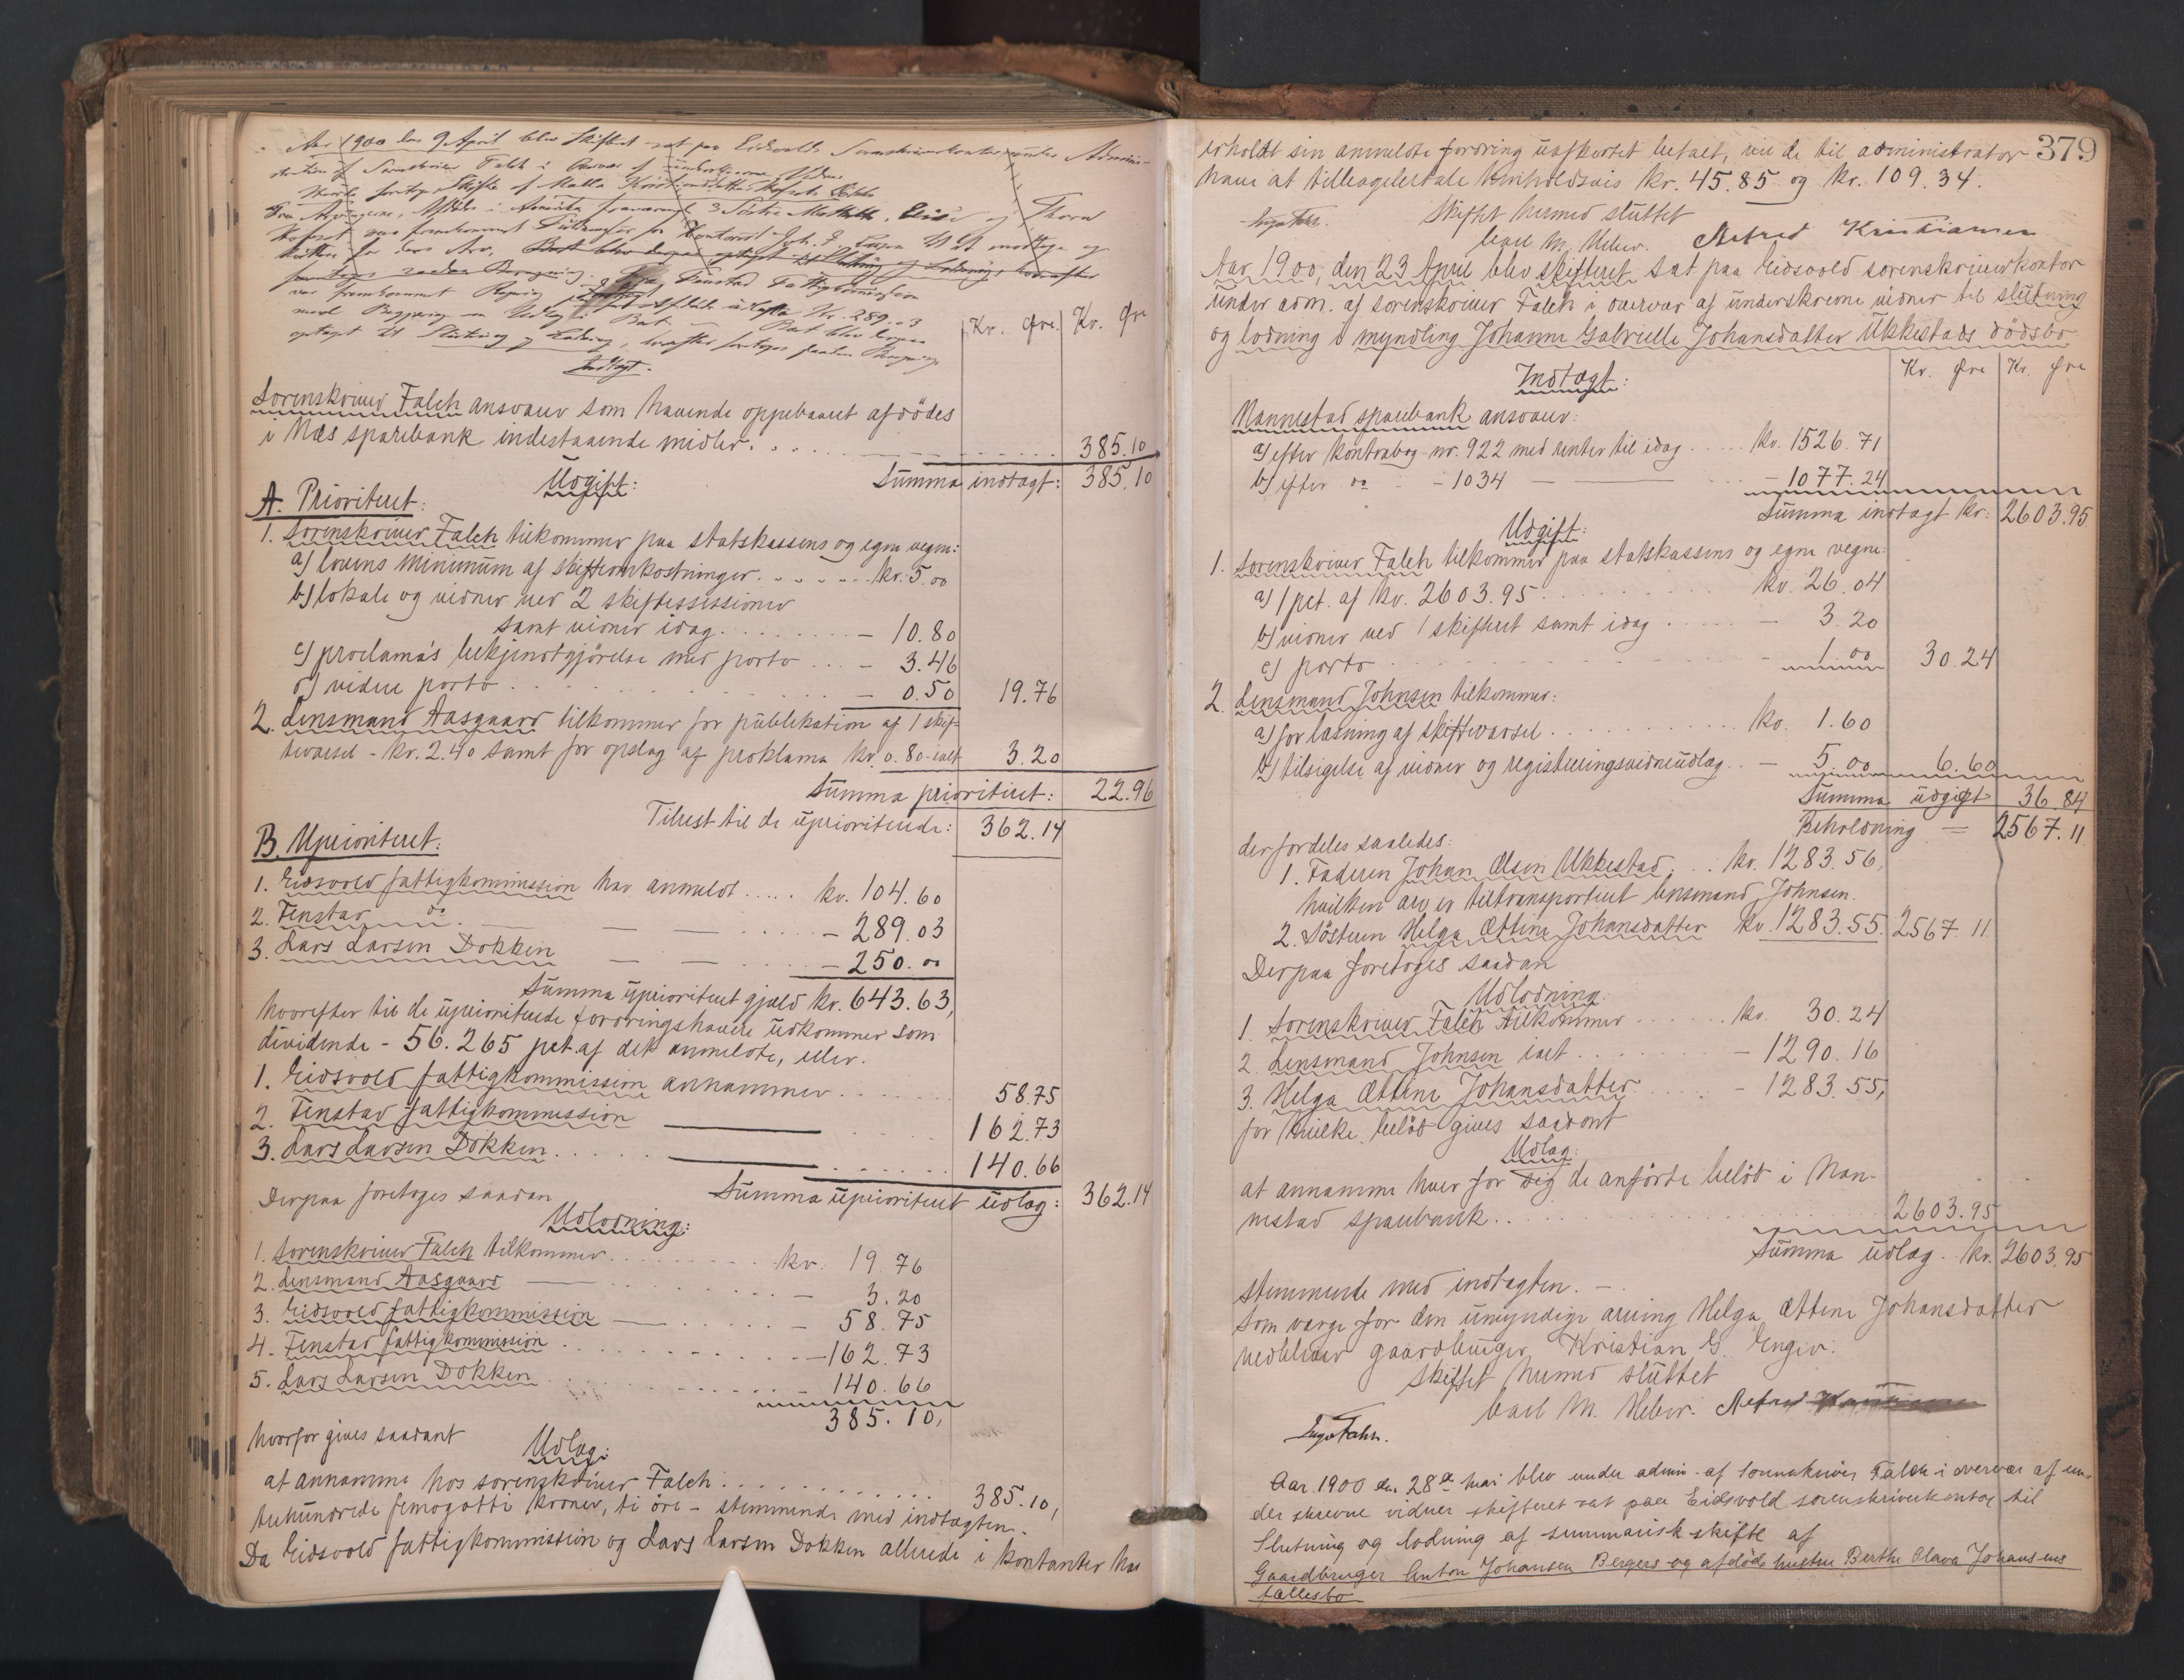 Aar 1900 den 9 April blev Skiftet sat paa Eidsvolds Sorenskriverkontor under Admini-
stration af Sorenskriver Falch i Overvær af underskrevne Vidner
Skifte af Malla Kristiansdatter
i Amerika 3 Søstre Mathilde, og Thora
var fremkommet
for deres Arv,
foretoges saadan Beregning. Fenstad Fattigkommission
var fremkommet Kr. 289.03
med Bo. Boet blev derpaa
optaget til Slutning og Lodning, hvorefter foretoges saadan
Indtægt.
Kr. Øre Kr. Øre
Sorenskriver Falch ansvarer som havende oppebaaret afdödes
i Næs sparebank indestaaende midler. . . 385.10
Summa indtægt: 385.10
Udgift:
A. Prioriteret:
1. Sorenskriver Falch tilkommer paa statskassens og egne vegne:
a) lovens minimum af skifteomkostninger. . . . . . kr. 5.00
b) lokale og vidner ved 2 skiftessessioner
samt vidner idag. . . . . . . . – 10.80
c) proclama's bekjendtgjörelse med porto . . . – 3.46
d) videre porto . . . . . – 0.50 19.76
2. Lensmand Aasgaard tilkommer for publikation af 1 skif-
tevarsel – kr. 2.40 samt for opslag af proklama kr. 0.80 – ialt 3.20
Summa prioriteret: 22.96
Tilrest til de uprioriterede: 362.14
B. Uprioriteret:
1. Eidsvold fattigkommission har anmeldt . . . . . kr. 104.60
2. Fenstad do — — – 289.03
3. Lars Larsen Dokken — — – 250.00
Summa uprioriteret gjæld kr. 643.63,
hvorefter til de uprioriterede fordringshavere udkommer som
dividende – 56.265 pct. af det anmeldte, eller.
1. Eidsvold fattigkommission annammer . . . . . . . 58.75
2. Fenstad fattigkommission —— 162.73
3. Lars Larsen Dokken . . . . . —— . . . . . . 140.66
Summa uprioriteret udlæg: 362.14
Derpaa foretoges saadan
Udlodning:
1. Sorenskriver Falch tilkommer . . . . . . . . . kr. 19.76
2. Lensmand Aasgaard —— – 3.20
3. Eidsvold fattigkommission —— – 58.75
4. Fenstad fattigkommission . . . . . –162.73
5. Lars Larsen Dokken . . . . . – 140.66
385.10,
hvorfor gives saadant
Udlæg:
at annamme hos sorenskriver Falch . . . . . . . . . . . 385.10,
trehundrede femogotti kroner, ti öre – stemmende med indtægten.
Da Eidsvold fattigkommission og Lars Larsen Dokken allerede i kontanter har
379
erholdt sin anmeldte fordring uafkortet betalt, vil de til administrator
have at tilbagebetale henholdsvis kr. 45.85 og kr. 109.34.
Skiftet hermed sluttet
Inga Falch. Carl M. Heber. Alfred Kristiansen
Aar 1900, den 23 April blev skifteret sat paa Eidsvold sorenskriverkontor
under adm. af sorenskriver Falch i overvær af underskrevne vidner til slutning
og lodning i myndling Johanne Gabrielle Johansdatter Ukkestads dödsbo.
Kr. Øre Kr. Øre
Indtægt:
Nannestad sparebank ansvarer:
a) efter kontrabog nr. 922 med renter til idag . . . . . kr. 1526.71
b) efter do – 1034 —— – 1077.24
Summa indtægt kr. 2603.95
Udgift:
1. Sorenskriver Falch tilkommer paa statskassens og egne vegne:
a) 1 pct. af kr. 2603.95 . . . . . . . . . kr. 26.04
b) vidner ved 1 skifteret samt idag . . . . . – 3.20
c) porto – 1.00 30.24
2. Lensmand Johnsen tilkommer:
a) for læsning af skiftevarsel . . . . . . . . . . kr. 1.60
b) tilsigelse af vidner og registreringsvidneudlæg . . – 5.00 6.60
Summa udgift 36.84
Beholdning = 2567.11
der fordeles saaledes:
1. Faderen Johan Olsen Ukkestad . . kr. 1283.56,
hvilken arv er tiltransporteret lensmand Johnsen.
2. Sösteren Helga Ottine Johansdatter kr. 1283.55. 2567.11.
Derpaa foretoges saadan
Udlodning:
1. Sorenskriver Falch tilkommer . . . . . . kr. 30.24
2. Lensmand Johnsen ialt . . . . . . . . . – 1290.16
3. Helga Ottine Johansdatter . . . . . – 1283.55,
for hvilke belöb gives saadant
Udlæg:
at annamme hver for sig de anförte belöb i Nan-
nestad sparebank . . 2603.95
Summa udlæg . kr. 2603.95
stemmende med indtægten. –
Som værge for den umyndige arving Helga Ottine Johansdatter
vedbliver gaardbruger Kristian G. Enger.
Skiftet hermed sluttet
Carl M. Heber. Alfred Kristiansen
Inga Falch.
Aar 1900 den 28de mai blev under admin. af sorenskriver Falch i overvær af un-
derskrevne vidner skifteret sat paa Eidsvold sorenskriverkontor til
Slutning og lodning af summarisk skifte af
Gaardbruger Anton Johansen Bergers og afdöde hustru Berthe Olava Johansens
fællesbo